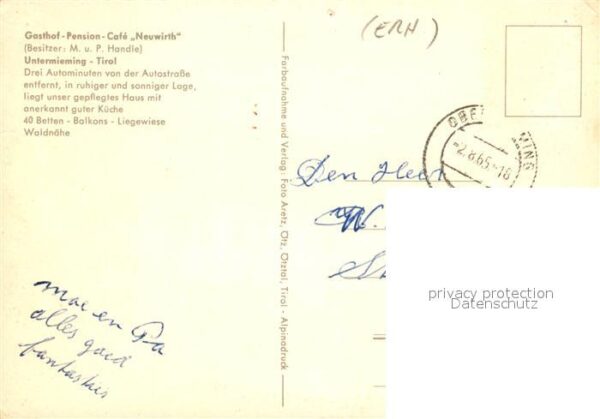 Gasthof-Pension-Café „Neuwirth"
(Besitzer: M. u. P. Handle)
Untermieming - Tirol
Drei Autominuten von der Autostraße
entfernt, in ruhiger und sonniger Lage,
liegt unser gepflegtes Haus mit
anerkannt guter Küche
40 Betten - Balkons - Liegewiese
Waldnähe
Farbaufnahme und Verlag: Foto Aretz, Ötz, Ötztal, Tirol - Alpinadruck
(ERH)
OBE MING
-2.8.65-18
Den Heer
W.
moe en Pa
alles goed
fantasties
privacy protection
Datenschutz